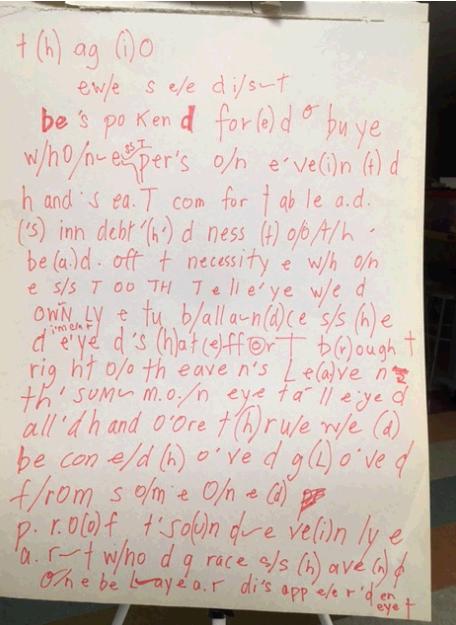 t (h) ag (i) o
ew/e s e/e d i/s~t
be's po Ken d for(e)d o bu ye
w/hO/n~e ss I per's o/n e've(i)n (t) d
h and's ea.T com for t ab le a.d.
('s) inn debt'(h') d ness (t) o/b A/h.
be(a.)d. off t necessity e w/h o/n
e s/s T OO TH T e ll e'ye w/e d
OWN LY e tu b/all a~n(d)c e s/s (h) e
d'e'ye d's (h)at(e)ff or T b(r)ough t
rig ht o/o th eave n's L e(a)ve n
th' sum~ m.o./n eye ta ll e'ye d
all'd h and o'Ore t(h)ru/e w/e (d)
be con e/d (h) o've d g(L) o've d
f/rom s o/m e O/n e (d)
p. r.o(o)f t'so(u)n d~e ve(i)n ly e
a. r~t w/ho d g race s/s (h) ave (n) ¢
O/n e be L~aye a.r di's app e/e r'd en eye t